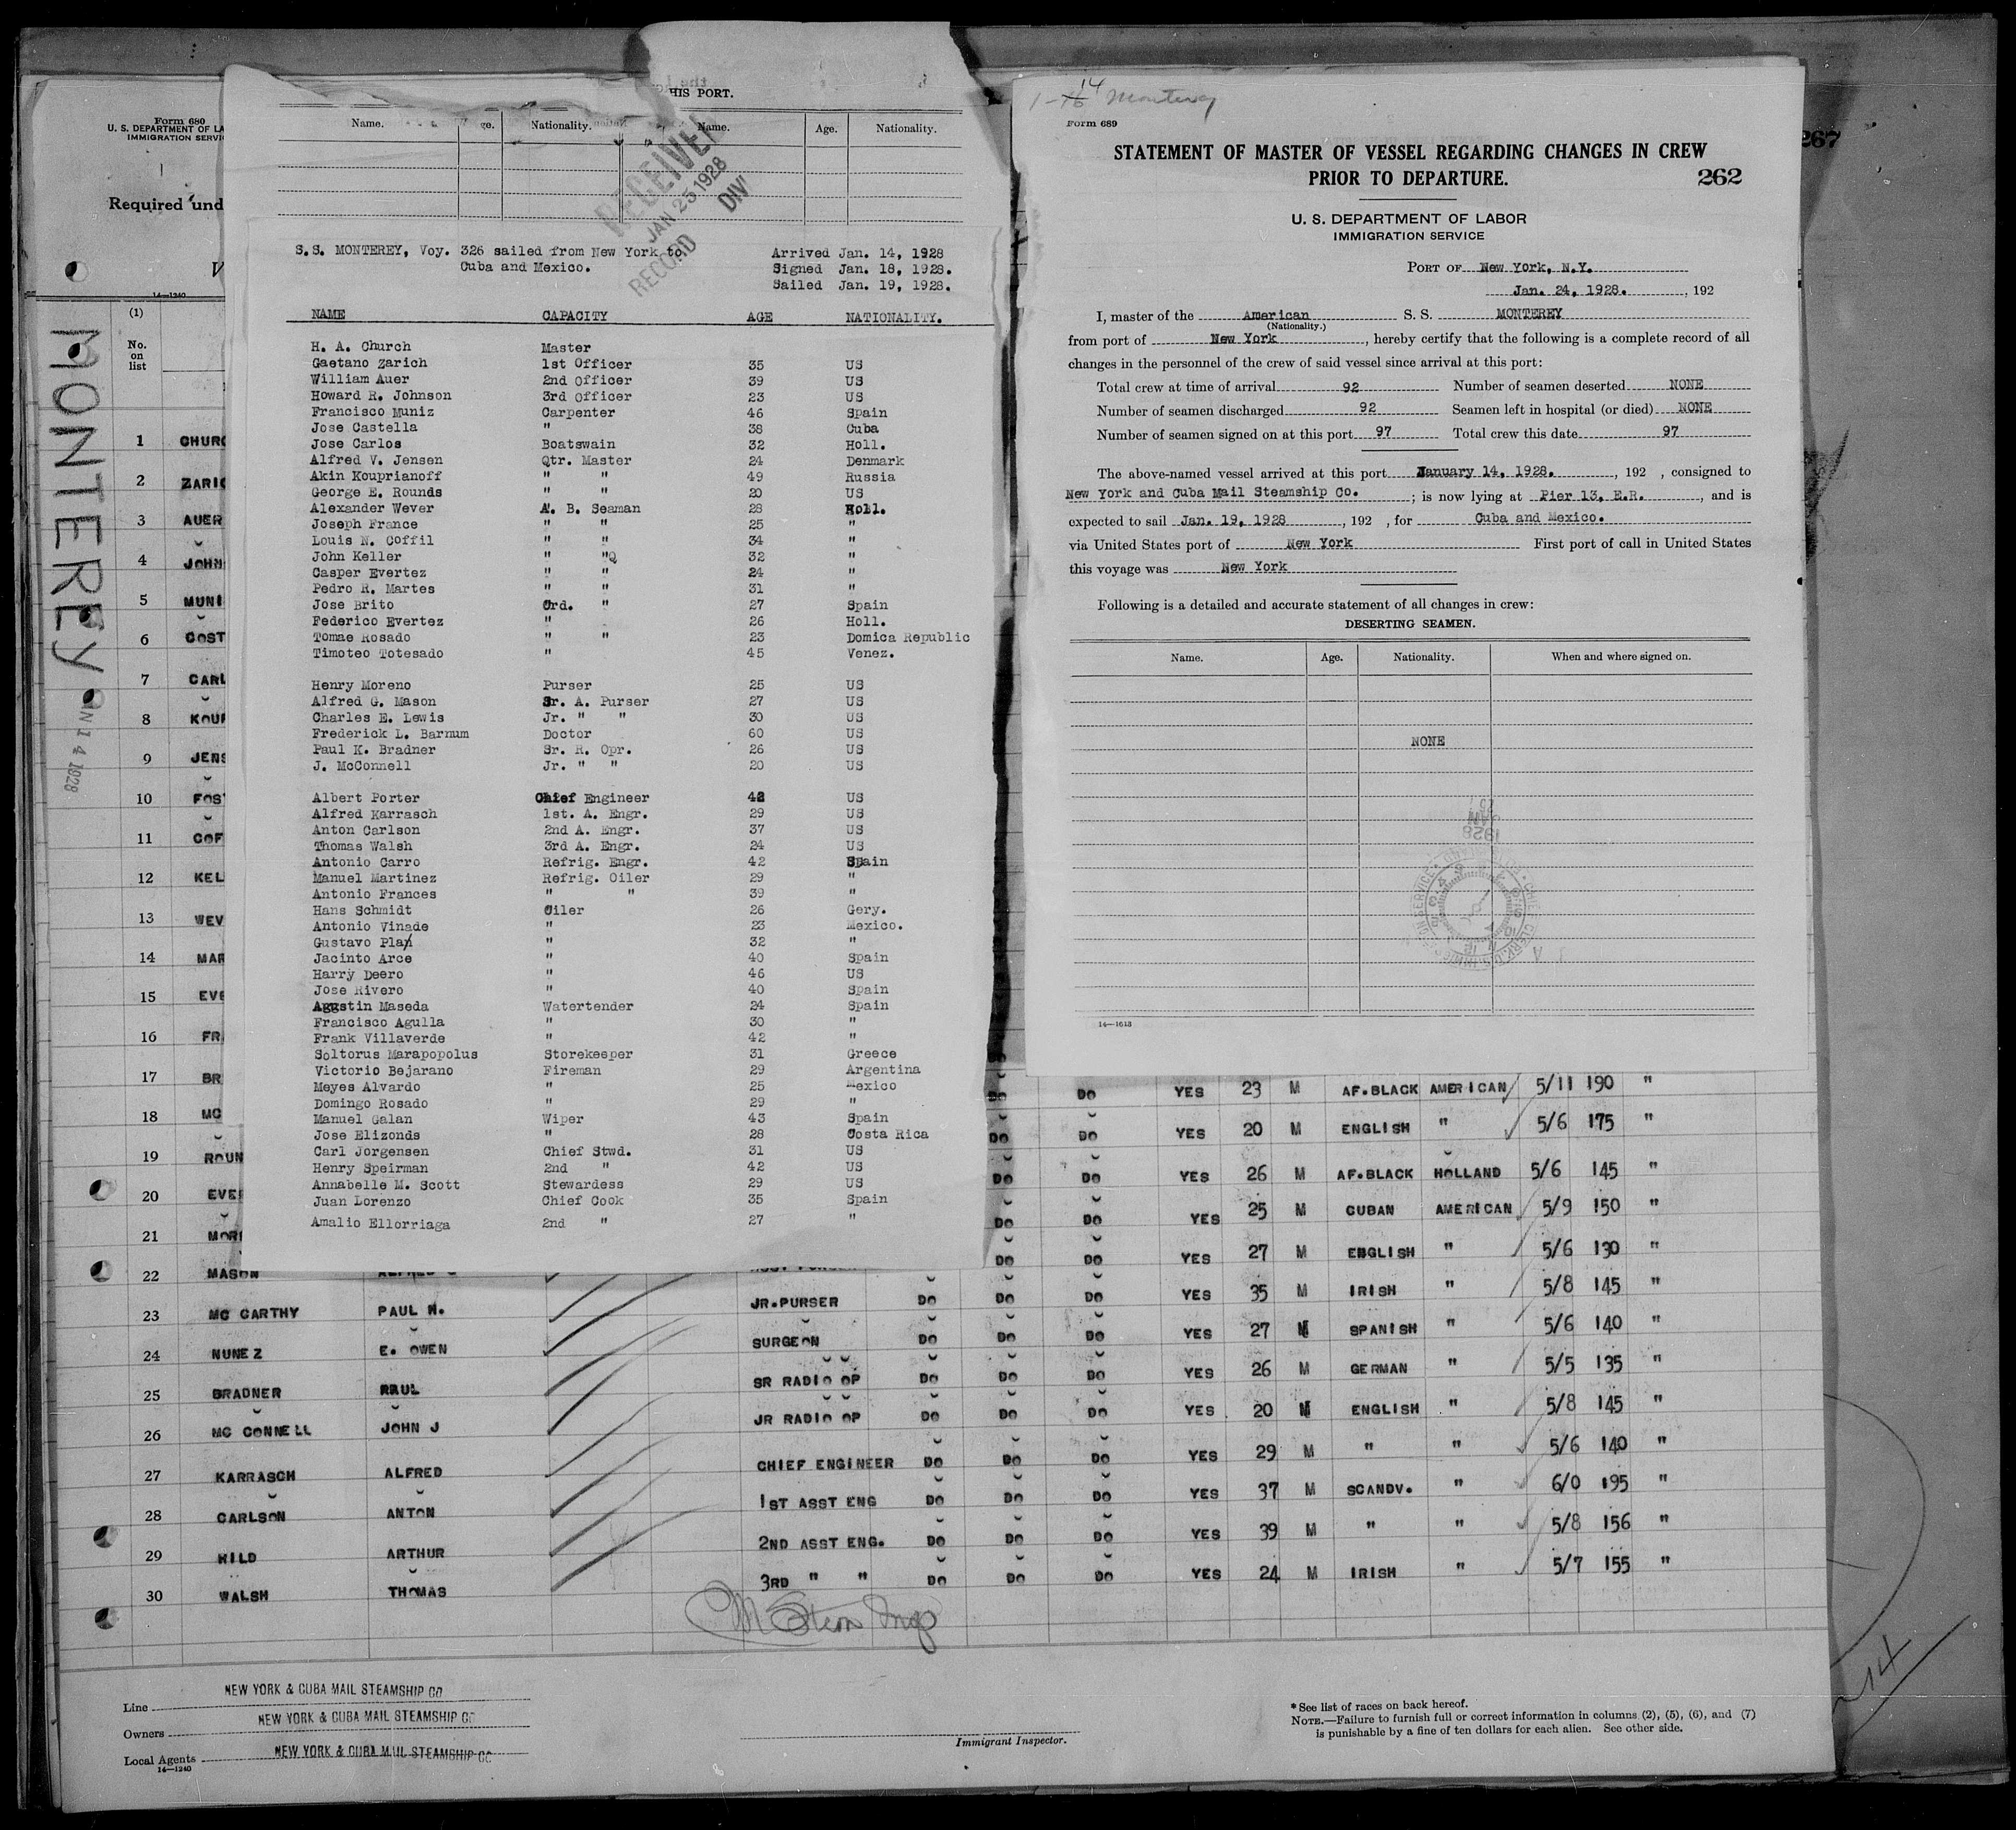 Form 680
U. S. DEPARTMENT OF LA
IMMIGRATION SERVI
Required und
14—1240
MONTEREY
14 1928
(1)
No.
on
list
1 CHUR
2 ZARI
3 AUER
4 JOHN
5 MUNI
6 COST
7 CARL
8 KOUP
9 JENS
10 FOS
11 COF
12 KEL
13 WEV
14 MAR
15 EVE
16 FR
17 BR
18 MC
19 ROUN
20 EVE
21 MOR
22 MASON
HIS PORT.
Name. Nationality. Name. Age. Nationality.
RECEIVED
JAN 25 1928
RECORD DIV
S.S. MONTEREY, Voy. 326 sailed from New York to Arrived Jan. 14, 1928
Cuba and Mexico. Signed Jan. 18, 1928.
Sailed Jan. 19, 1928.
NAME CAPACITY AGE NATIONALITY.
H. A. Church Master
Gaetano Zarich 1st Officer 35 US
William Auer 2nd Officer 39 US
Howard R. Johnson 3rd Officer 23 US
Francisco Muniz Carpenter 46 Spain
Jose Castella " 38 Cuba
Jose Carlos Boatswain 32 Holl.
Alfred V. Jensen Qtr. Master 24 Denmark
Akin Kouprianoff " " 49 Russia
George E. Rounds " " 20 US
Alexander Wever A. B. Seaman 28 Holl.
Joseph France " " 25 "
Louis N. Coffil " " 34 "
John Keller " "Q 32 "
Casper Evertez " " 24 "
Pedro R. Martes " " 31 "
Jose Brito Ord. " 27 Spain
Federico Evertez " 26 Holl.
Tomae Rosado " " 23 Domica Republic
Timoteo Totesado " 45 Venez.
Henry Moreno Purser 25 US
Alfred G. Mason Sr. A. Purser 27 US
Charles E. Lewis Jr. " " 30 US
Frederick L. Barnum Doctor 60 US
Paul K. Bradner Sr. R. Opr. 26 US
J. McConnell Jr. " " 20 US
Albert Porter Chief Engineer 42 US
Alfred Karrasch 1st. A. Engr. 29 US
Anton Carlson 2nd A. Engr. 37 US
Thomas Walsh 3rd A. Engr. 24 US
Antonio Carro Refrig. Engr. 42 Spain
Manuel Martinez Refrig. Oiler 29 "
Antonio Frances " " 39 "
Hans Schmidt Oiler 26 Gery.
Antonio Vinade " 23 Mexico.
Gustavo Plan " 32 "
Jacinto Arce " 40 Spain
Harry Deero " 46 US
Jose Rivero " 40 Spain
Aggstin Maseda Watertender 24 Spain
Francisco Agulla " 30 "
Frank Villaverde " 42 "
Soltorus Marapopolus Storekeeper 31 Greece
Victorio Bejarano Fireman 29 Argentina
Meyes Alvardo " 25 Mexico
Domingo Rosado " 29 "
Manuel Galan Wiper 43 Spain
Jose Elizonds " 28 Costa Rica
Carl Jorgensen Chief Stwd. 31 US
Henry Speirman 2nd " 42 US
Annabelle M. Scott Stewardess 29 US
Juan Lorenzo Chief Cook 35 Spain
Amalio Ellorriaga 2nd " 27 "
14
Monterey
Form 689
STATEMENT OF MASTER OF VESSEL REGARDING CHANGES IN CREW
PRIOR TO DEPARTURE. 262
267
U. S. DEPARTMENT OF LABOR
IMMIGRATION SERVICE
PORT OF New York, N.Y.
Jan. 24, 1928. , 192
I, master of the American S. S. MONTEREY
(Nationality.)
from port of New York , hereby certify that the following is a complete record of all
changes in the personnel of the crew of said vessel since arrival at this port:
Total crew at time of arrival 92 Number of seamen deserted NONE
Number of seamen discharged 92 Seamen left in hospital (or died) NONE
Number of seamen signed on at this port 97 Total crew this date 97
The above-named vessel arrived at this port January 14, 1928. , 192 , consigned to
New York and Cuba Mail Steamship Co. ; is now lying at Pier 13, E.R. , and is
expected to sail Jan. 19, 1928 , 192 , for Cuba and Mexico.
via United States port of New York First port of call in United States
this voyage was New York
Following is a detailed and accurate statement of all changes in crew:
DESERTING SEAMEN.
Name. Age. Nationality. When and where signed on.
NONE
14—1613
DO DO YES 23 M AF.BLACK AMERICAN 5/11 190 "
DO DO YES 20 M ENGLISH " 5/6 175 "
DO DO YES 26 M AF.BLACK HOLLAND 5/6 145 "
DO DO YES 25 M CUBAN AMERICAN 5/9 150 "
DO DO YES 27 M ENGLISH " 5/6 130 "
23 MC CARTHY PAUL H. JR.PURSER DO DO DO YES 35 M IRISH " 5/8 145 "
24 NUNEZ E. OWEN SURGEON DO DO DO YES 27 M SPANISH " 5/6 140 "
25 BRADNER PAUL SR RADIO OP DO DO DO YES 26 M GERMAN " 5/5 135 "
26 MC CONNELL JOHN J JR RADIO OP DO DO DO YES 20 M ENGLISH " 5/8 145 "
27 KARRASCH ALFRED CHIEF ENGINEER DO DO DO YES 29 M " " 5/6 140 "
28 CARLSON ANTON 1ST ASST ENG DO DO DO YES 37 M SCANDV. " 6/0 195 "
29 HILD ARTHUR 2ND ASST ENG. DO DO DO YES 39 M " " 5/8 156 "
30 WALSH THOMAS 3RD " " DO DO DO YES 24 M IRISH " 5/7 155 "
Line NEW YORK & CUBA MAIL STEAMSHIP CO
Owners NEW YORK & CUBA MAIL STEAMSHIP CO
Local Agents NEW YORK & CUBA MAIL STEAMSHIP CO
14—1240
Immigrant Inspector.
* See list of races on back hereof.
NOTE.—Failure to furnish full or correct information in columns (2), (5), (6), and (7)
is punishable by a fine of ten dollars for each alien. See other side.
14